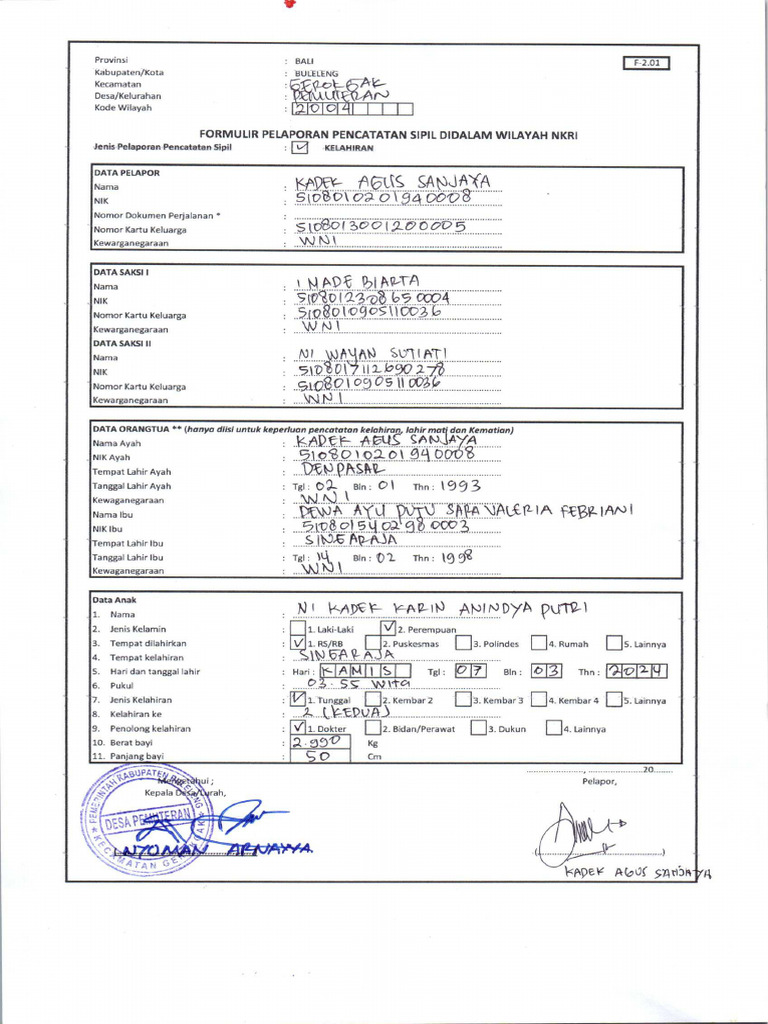 Provinsi : BALI F-2.01
Kabupaten/Kota : BULELENG
Kecamatan : GEROKGAK
Desa/Kelurahan : PEMUTERAN
Kode Wilayah : 2004
FORMULIR PELAPORAN PENCATATAN SIPIL DIDALAM WILAYAH NKRI
Jenis Pelaporan Pencatatan Sipil : ✓ KELAHIRAN
DATA PELAPOR
Nama : KADEK AGUS SANJAYA
NIK : 5108010201940008
Nomor Dokumen Perjalanan * :
Nomor Kartu Keluarga : 5108013001200005
Kewarganegaraan : WNI
DATA SAKSI I
Nama : I MADE BIARTA
NIK : 5108012308650004
Nomor Kartu Keluarga : 5108010905110036
Kewarganegaraan : WNI
DATA SAKSI II
Nama : NI WAYAN SUTIATI
NIK : 5108017112690278
Nomor Kartu Keluarga : 5108010905110036
Kewarganegaraan : WNI
DATA ORANGTUA ** (hanya diisi untuk keperluan pencatatan kelahiran, lahir mati dan Kematian)
Nama Ayah : KADEK AGUS SANJAYA
NIK Ayah : 5108010201940008
Tempat Lahir Ayah : DENPASAR
Tanggal Lahir Ayah : Tgl : 02 Bln : 01 Thn : 1993
Kewaganegaraan : WNI
Nama Ibu : DEWA AYU PUTU SARA VALERIA FEBRIANI
NIK Ibu : 5108015402980003
Tempat Lahir Ibu : SINGARAJA
Tanggal Lahir Ibu : Tgl : 14 Bln : 02 Thn : 1998
Kewaganegaraan : WNI
Data Anak
1. Nama : NI KADEK KARIN ANINDYA PUTRI
2. Jenis Kelamin : 1. Laki-Laki ✓ 2. Perempuan
3. Tempat dilahirkan : ✓ 1. RS/RB 2. Puskesmas 3. Polindes 4. Rumah 5. Lainnya
4. Tempat kelahiran : SINGARAJA
5. Hari dan tanggal lahir : Hari : KAMIS Tgl : 07 Bln : 03 Thn : 2024
6. Pukul : 03.55 WITA
7. Jenis Kelahiran : ✓ 1. Tunggal 2. Kembar 2 3. Kembar 3 4. Kembar 4 5. Lainnya
8. Kelahiran ke : 2 (KEDUA)
9. Penolong kelahiran : ✓ 1. Dokter 2. Bidan/Perawat 3. Dukun 4. Lainnya
10. Berat bayi : 2.990 Kg
11. Panjang bayi : 50 Cm
..................., ........20........
Mengetahui ; Pelapor,
Kepala Desa/Lurah,
PEMERINTAH KABUPATEN BULELENG
DESA PEMUTERAN
KECAMATAN GEROKGAK
I NYOMAN ARNAYYA
(..............................)
KADEK AGUS SANJAYA